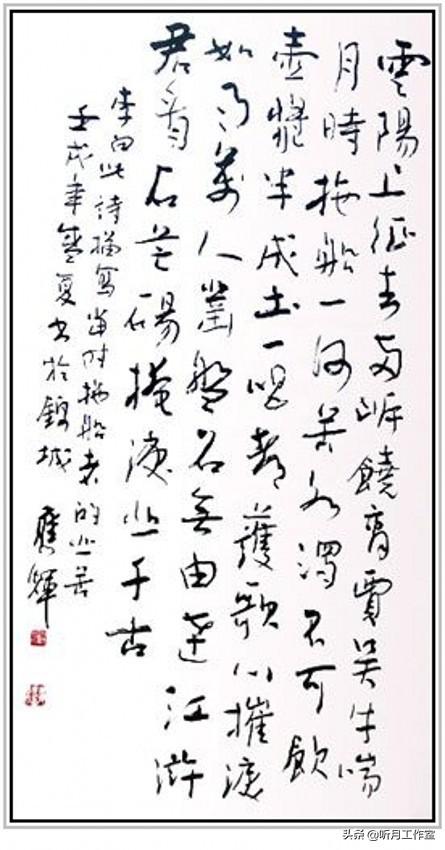 雲陽上征去两岸饒商賈吴牛喘
月時拖船一何苦水濁不可飲
壺漿半成土一唱都護歌心摧淚
如雨萬人鑿盤石無由達江滸
君看石芒碭掩淚悲千古
李白此詩描寫當時拖船者的悲苦
壬戌年盛夏書於錦城 應輝
头条 @听月工作室